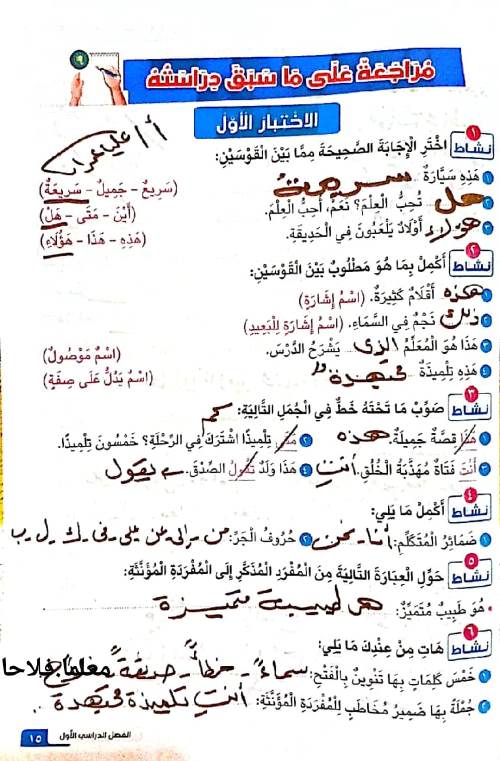 ٩
مُرَاجَعَةٌ عَلَى مَا سَبَقَ دِرَاسَتُهُ
الاختبار الأول
أ / علياء عمران
١ نشاط اخْتَرِ الْإِجَابَةَ الصَّحِيحَةَ مِمَّا بَيْنَ الْقَوْسَيْنِ:
١ هَذِهِ سَيَّارَةٌ سريعة (سَرِيعٌ - جَمِيلٌ - سَرِيعَةٌ)
٢ هل نُحِبُّ الْعِلْمَ؟ نَعَمْ، أُحِبُّ الْعِلْمَ. (أَيْنَ - مَتَى - هَلْ)
٣ هؤلاء أَوْلَادٌ يَلْعَبُونَ فِي الْحَدِيقَةِ. (هَذِهِ - هَذَا - هَؤُلَاءِ)
٢ نشاط أَكْمِلْ بِمَا هُوَ مَطْلُوبٌ بَيْنَ الْقَوْسَيْنِ:
١ هذه أَقْلَامٌ كَثِيرَةٌ. (اسْمُ إِشَارَةٍ)
٢ ذلك نَجْمٌ فِي السَّمَاءِ. (اسْمُ إِشَارَةٍ لِلْبَعِيدِ)
٣ هَذَا هُوَ الْمُعَلِّمُ الذى يَشْرَحُ الدَّرْسَ. (اسْمٌ مَوْصُولٌ)
٤ هَذِهِ تِلْمِيذَةٌ مجتهدة (اسْمٌ يَدُلُّ عَلَى صِفَةٍ)
٣ نشاط صَوِّبْ مَا تَحْتَهُ خَطٌّ فِي الْجُمَلِ التَّالِيَةِ: كم
١ هَذَا قِصَّةٌ جَمِيلَةٌ. هذه ٢ مَتَى تِلْمِيذًا اشْتَرَكَ فِي الرِّحْلَةِ؟ خَمْسُونَ تِلْمِيذًا.
٣ أَنْتَ فَتَاةٌ مُهَذَّبَةُ الْخُلُقِ. أنتِ ٤ هَذَا وَلَدٌ تَقُولُ الصِّدْقَ. يقول
٤ نشاط أَكْمِلْ مَا يَلِي:
١ ضَمَائِرُ الْمُتَكَلِّمِ: أنا - نحن ٢ حُرُوفُ الْجَرِّ: من - إلى - عن - على - فى - ك - ل - ب
٥ نشاط حَوِّلِ الْعِبَارَةَ التَّالِيَةَ مِنَ الْمُفْرَدِ الْمُذَكَّرِ إِلَى الْمُفْرَدَةِ الْمُؤَنَّثَةِ:
• هُوَ طَبِيبٌ مُتَمَيِّزٌ: هى طبيبة متميزة
٦ نشاط هَاتِ مِنْ عِنْدِكَ مَا يَلِي:
١ خَمْسَ كَلِمَاتٍ بِهَا تَنْوِينٌ بِالْفَتْحِ: سماءً - خطأً - حديقةً - معلمًا فلاحا
٢ جُمْلَةً بِهَا ضَمِيرُ مُخَاطَبٍ لِلْمُفْرَدَةِ الْمُؤَنَّثَةِ: أنتِ تلميذة مجتهدة
١٥ الفصل الدراسي الأول